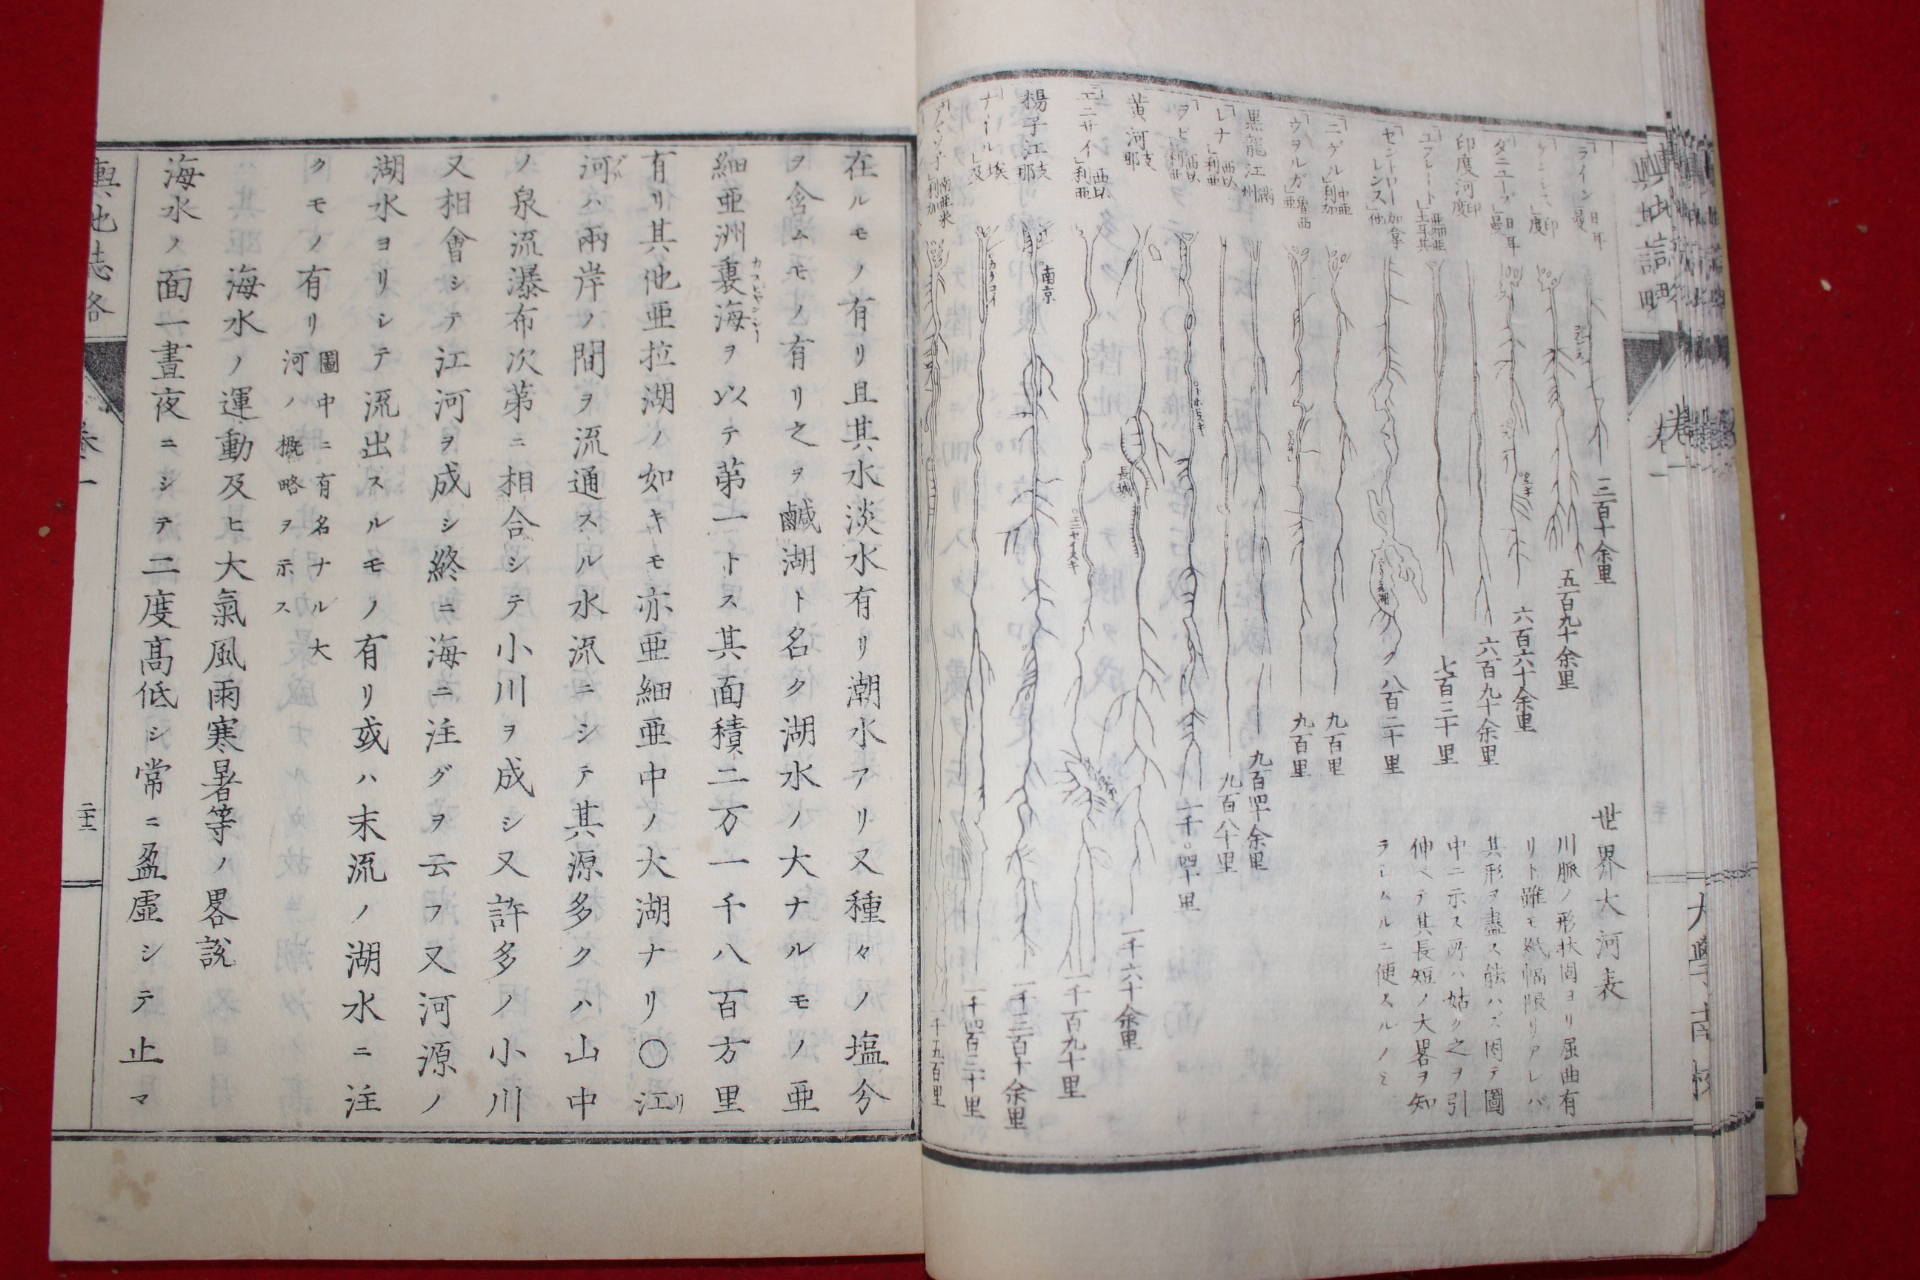 輿地誌略
卷一
大學南校
世界大河表
川脈ノ形状固ヨリ屈曲有
リト雖モ紙幅限リアレバ
其形ヲ盡ス能ハズ因テ圖
中ニ示ス所ハ姑ク之ヲ引
伸ベテ其長短ノ大畧ヲ知
ヲシムルニ便スルノミ
「ライン」日耳曼
三百十余里
印度
五百九十余里
「ダニューブ」日耳曼
六百六十余里
印度河 印度
六百九十余里
「ユフレート」亜細亜土耳其
七百二十里
「セントローレンス」加拿他
八百二十里
「ニゲル」中亜利加
九百里
「ウヲルガ」魯西亜
九百里
黒龍江 滿州
九百四十余里
「レナ」西以利亜
九百八十里
「ヲビ」西以利亜
一千〇四十里
黄河 支那
一千六十余里
長城
「エニサイ」西以利亜
一千百九十里
楊子江 支那
南京
一千三百十余里
「ナイル」埃及
一千四百三十里
南亜米利加
千五百里
在ルモノ有リ且其水淡水有リ潮水アリ又種々ノ塩分
ヲ含ムモノ有リ之ヲ鹹湖ト名ク湖水ノ大ナルモノ亜
細亜洲裏海ヲ以テ第一トス其面積二万一千八百方里
有リ其他亜拉湖ノ如キモ亦亜細亜中ノ大湖ナリ〇江
河ハ兩岸ノ間ヲ流通スル水流ニシテ其源多クハ山中
ノ泉流瀑布次第ニ相合シテ小川ヲ成シ又許多ノ小川
又相會シテ江河ヲ成シ終ニ海ニ注グヲ云フ又河源ノ
湖水ヨリシテ流出スルモノ有リ或ハ末流ノ湖水ニ注
クモノ有リ圖中ニ有名ナル大
河ノ概略ヲ示ス
海水ノ運動及ヒ大氣風雨寒暑等ノ畧説
海水ノ面一晝夜ニシテ二度髙低シ常ニ盈虛シテ止マ
輿地誌略
卷一
二十三